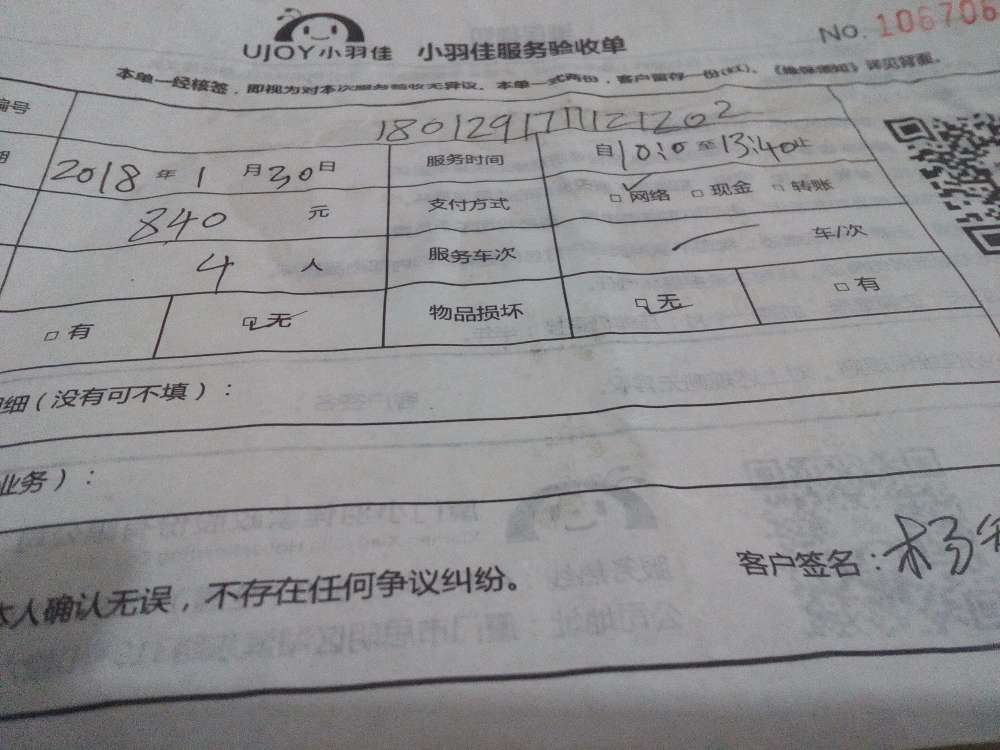 UJOY小羽佳 小羽佳服务验收单 No. 106706
本单一经核签，即视为对本次服务验收无异议。本单一式两份，客户留存一份(红)。《维保须知》详见背面。
编号 1801291711121202
期 2018年1月30日 服务时间 自10:0至13:40止
840元 支付方式 网络 现金 转账
4人 服务车次 车/次
有 无 物品损坏 无 有
细（没有可不填）：
业务）：
本人确认无误，不存在任何争议纠纷。 客户签名：杨